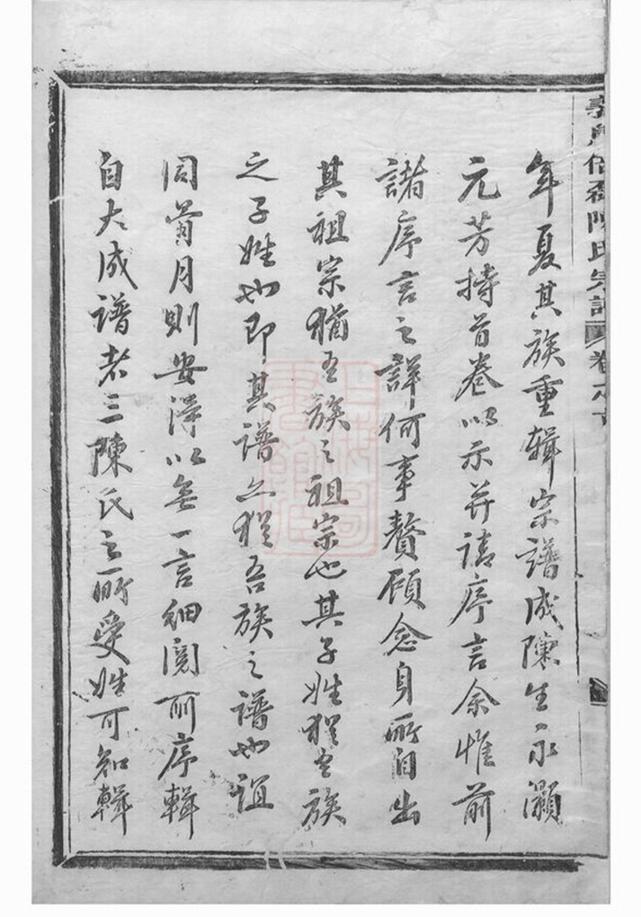 年夏其族重輯宗譜成陳生永灝
元芳持首卷以示并請序言余惟前
諸序言之詳何事贅顧念身所自出
其祖宗猶吾族之祖宗也其子姓猶吾族
之子姓也即其譜亦猶吾族之譜也誼
同 月則安得以無一言細閱前序輯
自大成譜者三陳氏之所受姓可知輯
陳氏宗譜 卷之首